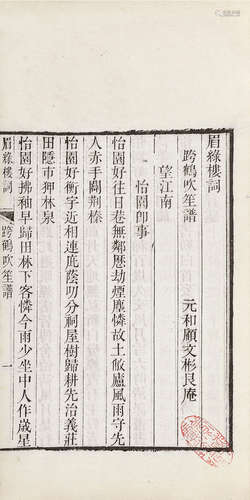 眉綠樓詞
跨鶴吹笙譜 元和顧文彬艮庵
望江南
怡園卽事
怡園好往日巷無鄰歷劫煙塵憐故土廬風雨守先
人赤手闢荆榛
怡園好衡宇近相連庇蔭叨分祠屋樹歸耕先治義莊
田隱市狎林泉
怡園好拂袖早歸田林下客憐今雨少坐中人作歲星
眉綠樓詞 跨鶴吹笙譜 一